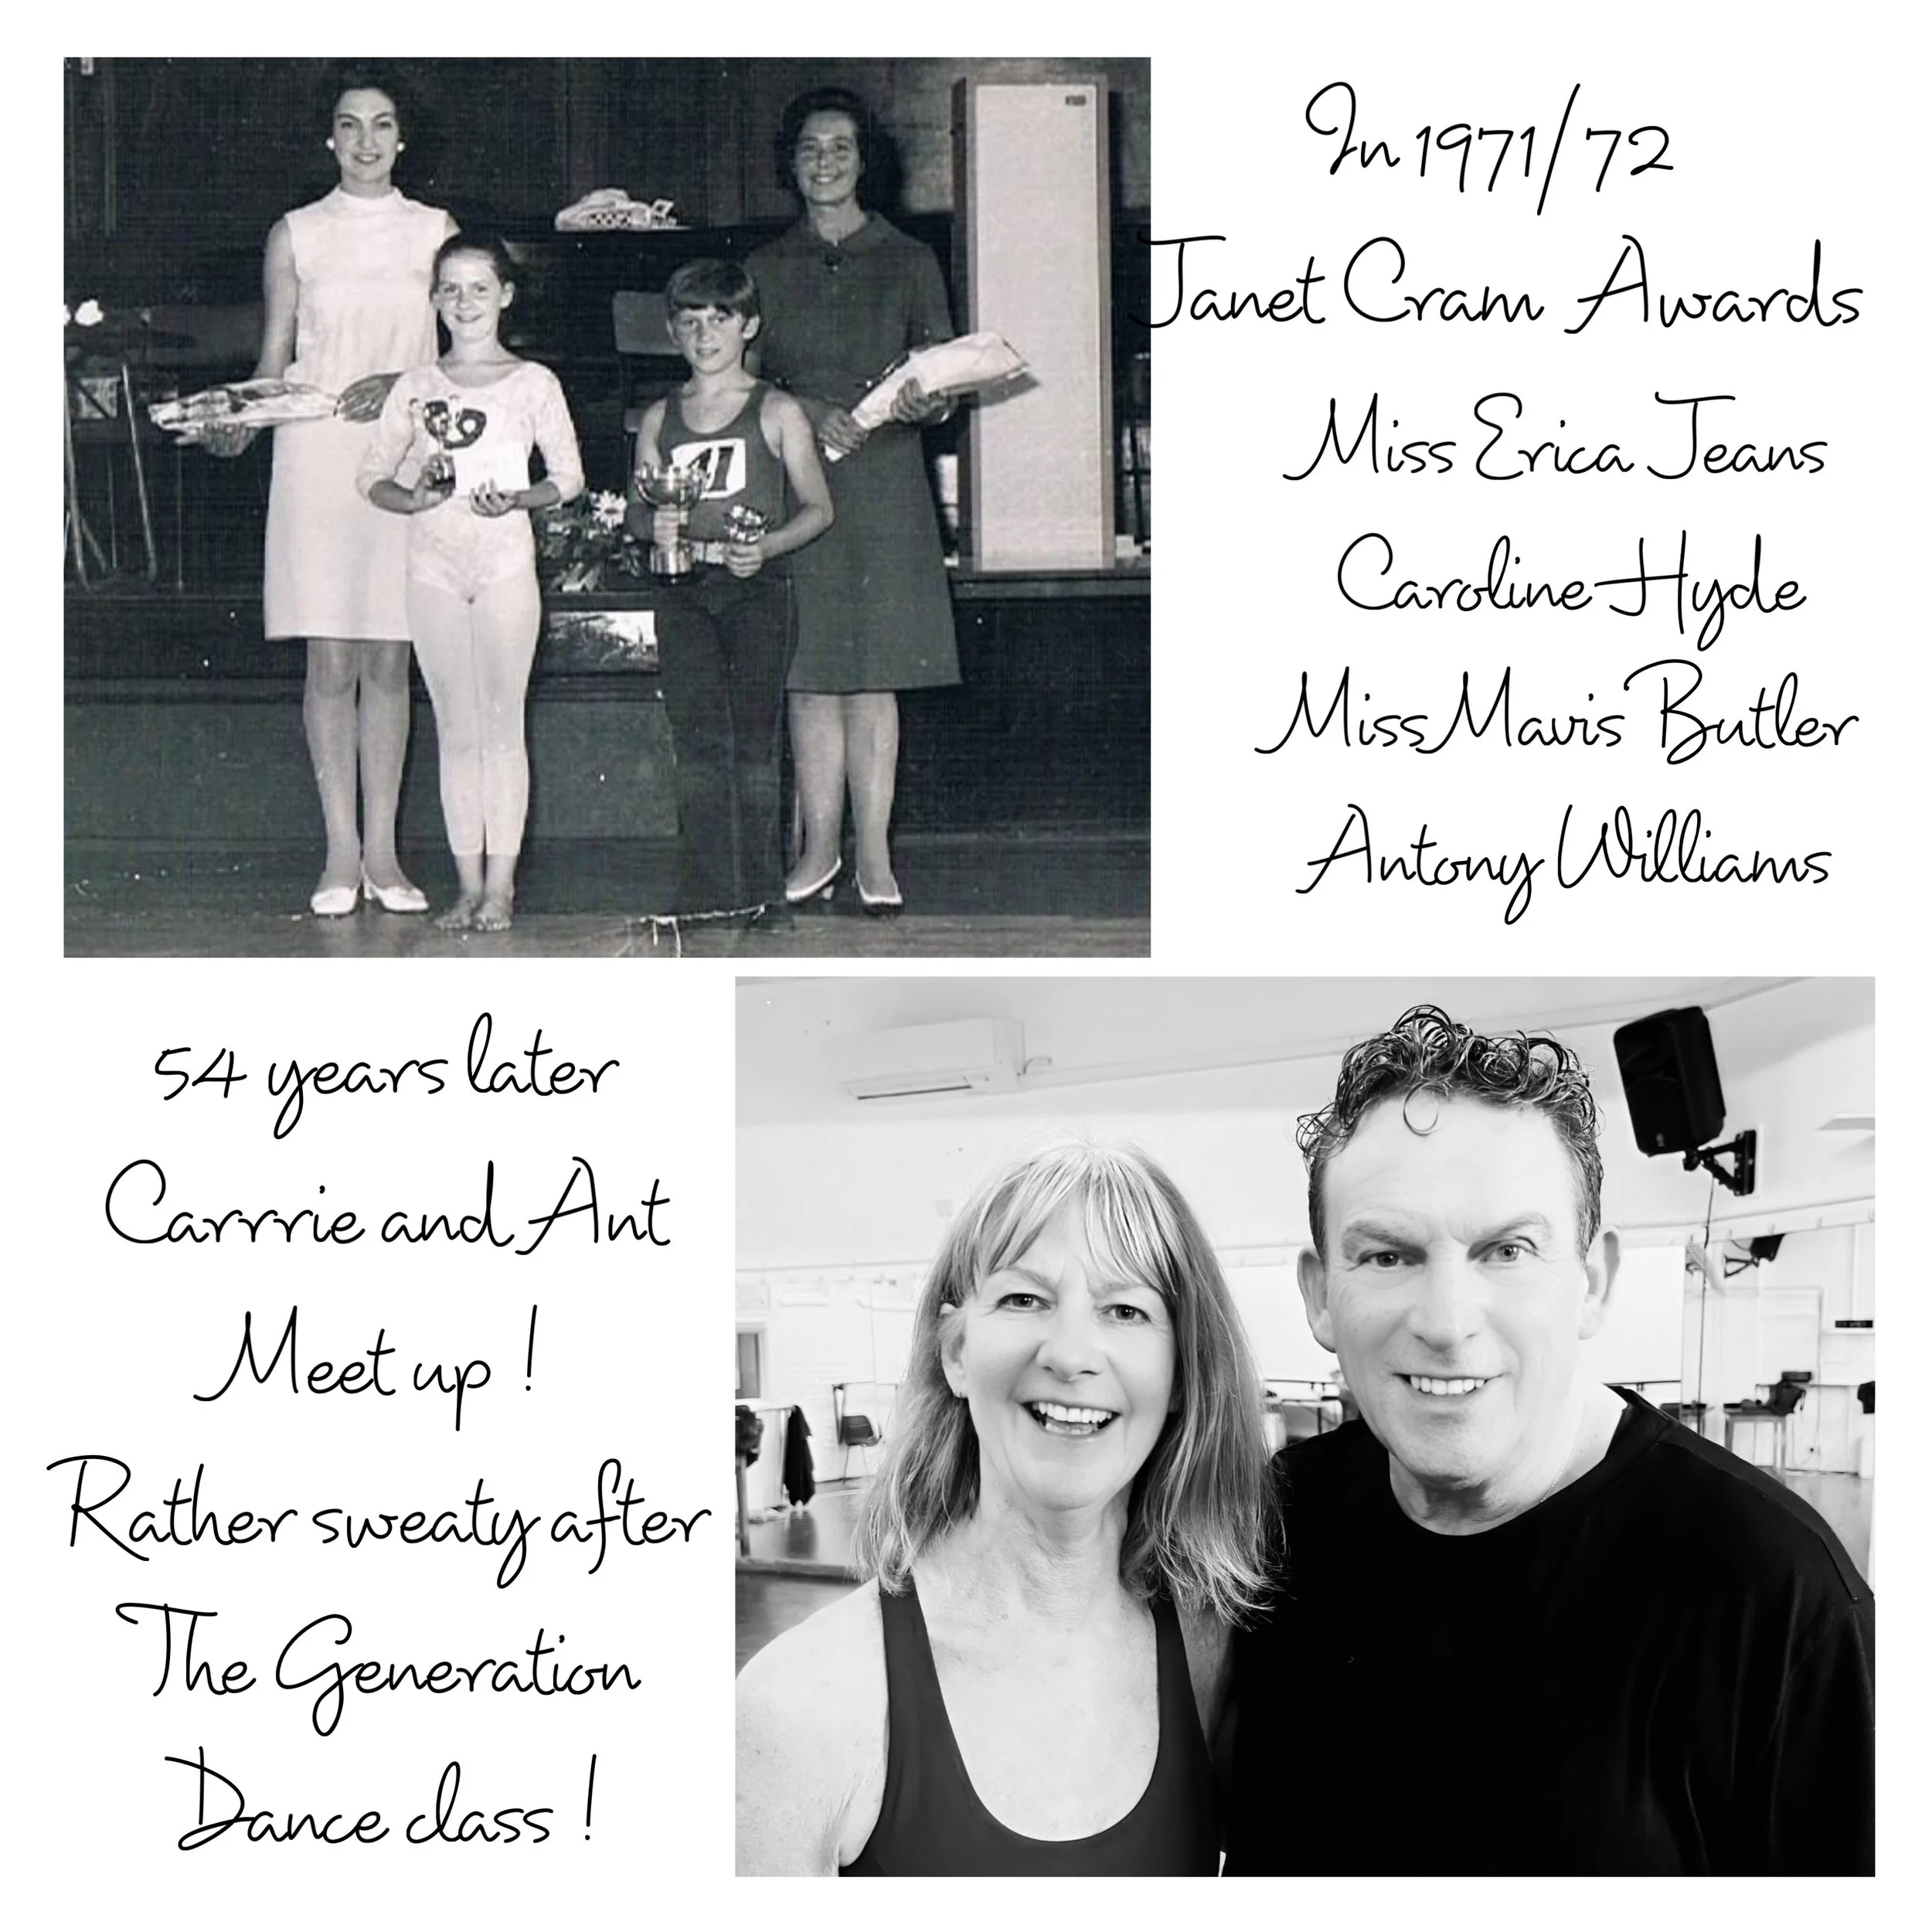 In 1971/72
Janet Cram Awards
Miss Erica Jeans
Caroline Hyde
Miss Mavis Butler
Antony Williams
54 years later
Carrrie and Ant
Meet up !
Rather sweaty after
The Generation
Dance class !